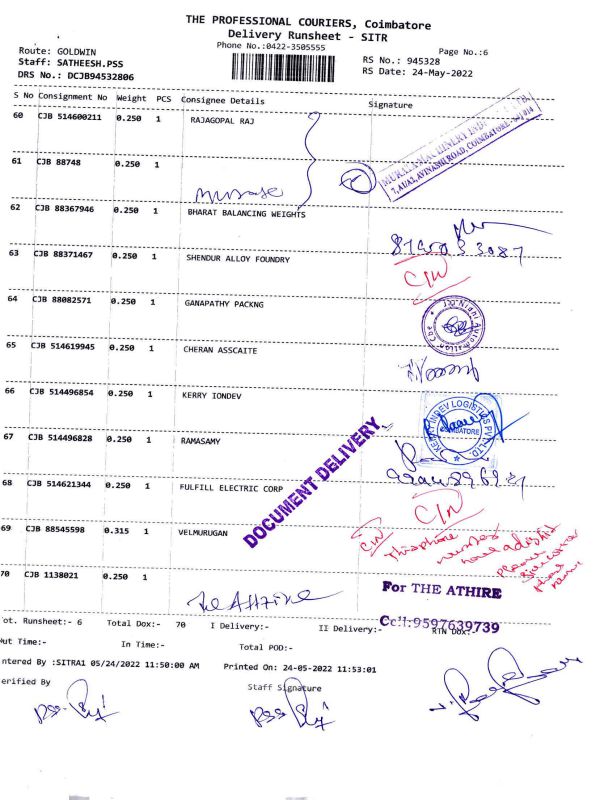 THE PROFESSIONAL COURIERS, Coimbatore
Delivery Runsheet - SITR
Phone No.:0422-3505555
Page No.:6
Route: GOLDWIN
RS No.: 945328
Staff: SATHEESH.PSS
RS Date: 24-May-2022
DRS No.: DCJB94532806
S No Consignment No Weight PCS Consignee Details Signature
60 CJB 514600211 0.250 1 RAJAGOPAL RAJ
61 CJB 88748 0.250 1
AVINASHI ROAD, COIMBATORE
62 CJB 88367946 0.250 1 BHARAT BALANCING WEIGHTS
63 CJB 88371467 0.250 1 SHENDUR ALLOY FOUNDRY
C/N
64 CJB 88082571 0.250 1 GANAPATHY PACKNG
65 CJB 514619945 0.250 1 CHERAN ASSCAITE
66 CJB 514496854 0.250 1 KERRY IONDEV
67 CJB 514496828 0.250 1 RAMASAMY
DOCUMENT DELIVERY
68 CJB 514621344 0.250 1 FULFILL ELECTRIC CORP
C/N
69 CJB 88545598 0.315 1 VELMURUGAN
C/N
This phone number
70 CJB 1138021 0.250 1
The Athire
For THE ATHIRE
Cell:9597639739
ot. Runsheet:- 6 Total Dox:- 70 I Delivery:- II Delivery:- RTN Dox:-
Out Time:- In Time:- Total POD:-
ntered By :SITRA1 05/24/2022 11:50:00 AM Printed On: 24-05-2022 11:53:01
erified By Staff Signature